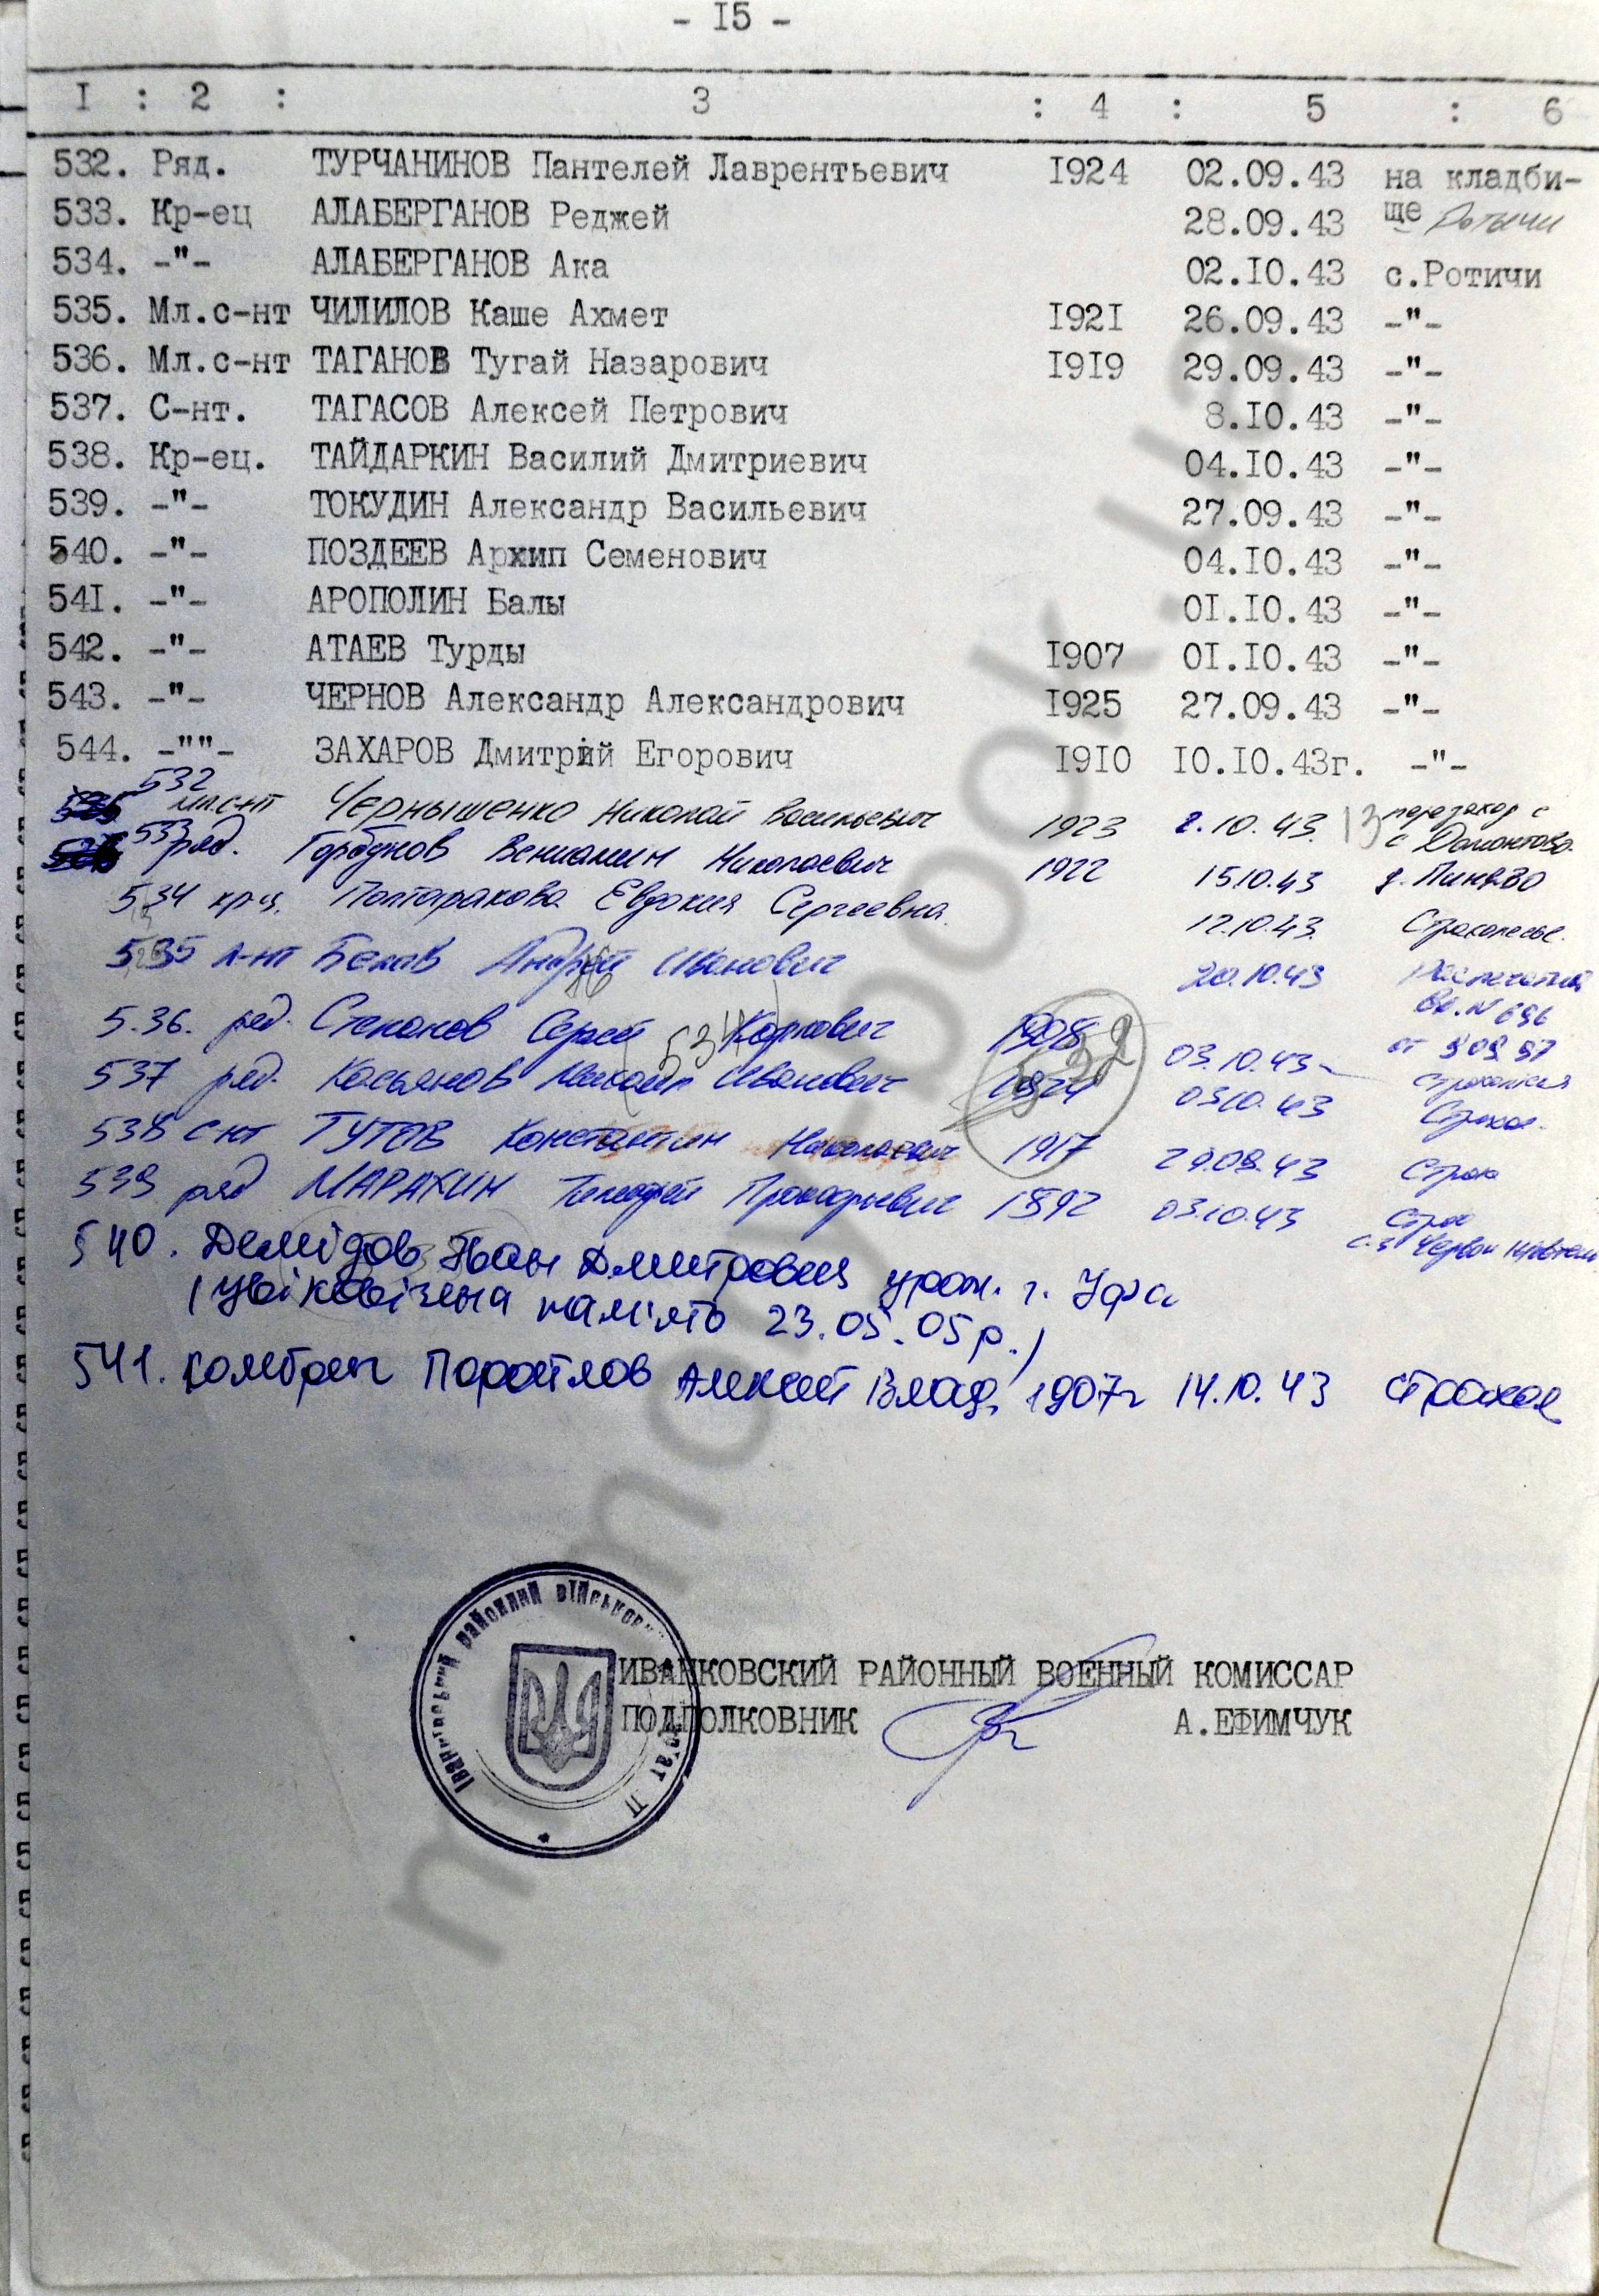 - I5 -
I : 2 : 3 : 4 : 5 : 6
532. Ряд. ТУРЧАНИНОВ Пантелей Лаврентьевич I924 02.09.43 на кладби-
533. Кр-ец АЛАБЕРГАНОВ Реджей 28.09.43 ще Ротичи
534. -"- АЛАБЕРГАНОВ Ака 02.I0.43 с.Ротичи
535. Мл.с-нт ЧИЛИЛОВ Каше Ахмет I92I 26.09.43 -"-
536. Мл.с-нт ТАГАНОВ Тугай Назарович I9I9 29.09.43 -"-
537. С-нт. ТАГАСОВ Алексей Петрович 8.I0.43 -"-
538. Кр-ец. ТАЙДАРКИН Василий Дмитриевич 04.I0.43 -"-
539. -"- ТОКУДИН Александр Васильевич 27.09.43 -"-
540. -"- ПОЗДЕЕВ Архип Семенович 04.I0.43 -"-
54I. -"- АРОПОЛИН Балы 0I.I0.43 -"-
542. -"- АТАЕВ Турды I907 0I.I0.43 -"-
543. -"- ЧЕРНОВ Александр Александрович I925 27.09.43 -"-
544. -""- ЗАХАРОВ Дмитрий Егорович I9I0 I0.I0.43г. -"-
532 мл.с-нт Чернышенко Николай Васильевич 1923 2.10.43. 13 перезахор с
с Домонтово
533 ряд. Горбунов Вениамин Николаевич 1922 15.10.43
534 кр-ц. Полтаракова Евдокия Сергеевна 12.10.43. Страхолесье.
535 л-нт Белов Андрей Иванович 20.10.43
Вх. N 696
5.36. ряд. Степанов Сергей Карпович 1908 03.10.43
537 ряд. Касьянов Михаил Иванович 1924 03.10.43 Страхол.
532
538 с-нт ТУТОВ Константин Николаевич 1917 29.09.43 Страх
539 ряд МАРАКИН Тимофей Прокофьевич 1892 03.10.43 Страх
540. Демідов Иван Дмитровия урож. г. Уфа
(увіковічена пам'ять 23.05.05р.)
541. комбриг Паротлов Алексей Влад. 1907г 14.10.43 Страхол
ИВАНКОВСКИЙ РАЙОННЫЙ ВОЕННЫЙ КОМИССАР
ПОДПОЛКОВНИК А.ЕФИМЧУК
районний військовий